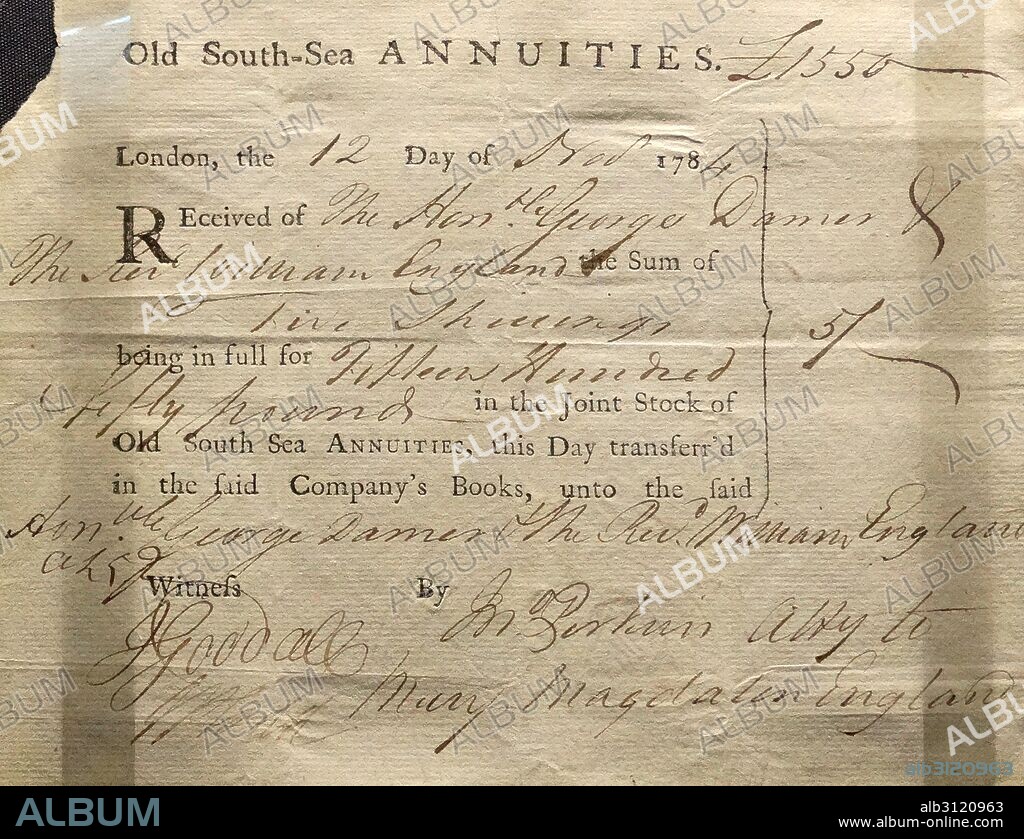 Old South-Sea ANNUITIES. £1550
London, the 12 Day of Nov 1784
REceived of The Honble George Damer &
The Revd William England the Sum of
Five Shillings 5/
being in full for Fifteen Hundred
& fifty pounds in the Joint Stock of
Old South Sea ANNUITIES, this Day transferr'd
in the ſaid Company's Books, unto the ſaid
Honble George Damer & the Revd William England
Witneſs By Jno Perkins Atty to
J Goodall
Mary Magdalen England
ALBUM
ab3120963
alb3120963
www.album-online.com